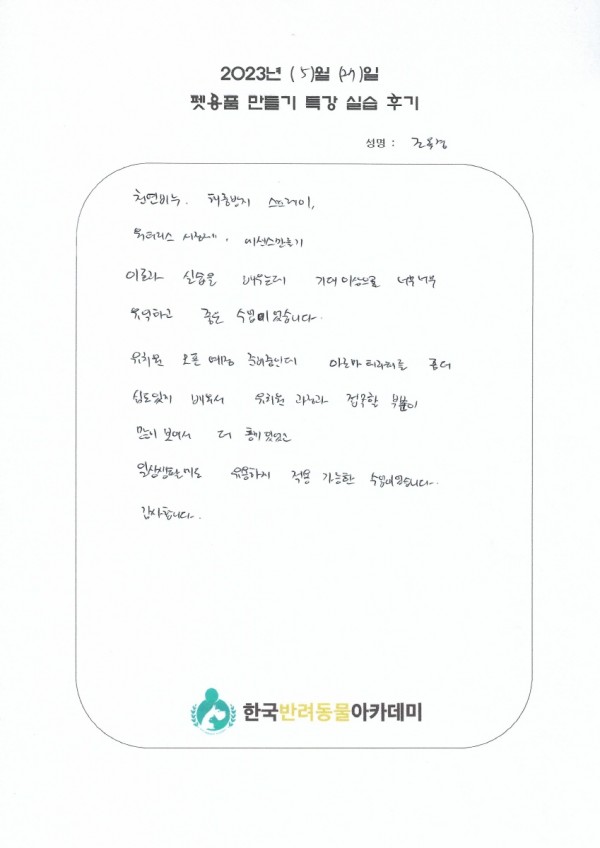 2023년 (5)월 (27)일
펫용품 만들기 특강 실습 후기
성명 :
천연비누. 해충방지 스프레이,
워터리스 샴푸, 에센스만들기
이론과 실습을 배우는데 기대 이상으로 너무너무
유익하고 좋은 수업이었습니다.
유치원 오픈 예정 준비중인데 아로마 테라피를 좀더
심도있게 배워서 유치원 과정과 접목할 부분이
많이 보여서 더 좋았고
일상생활에도 유용하게 적용 가능한 수업이었습니다.
감사합니다.
한국반려동물아카데미